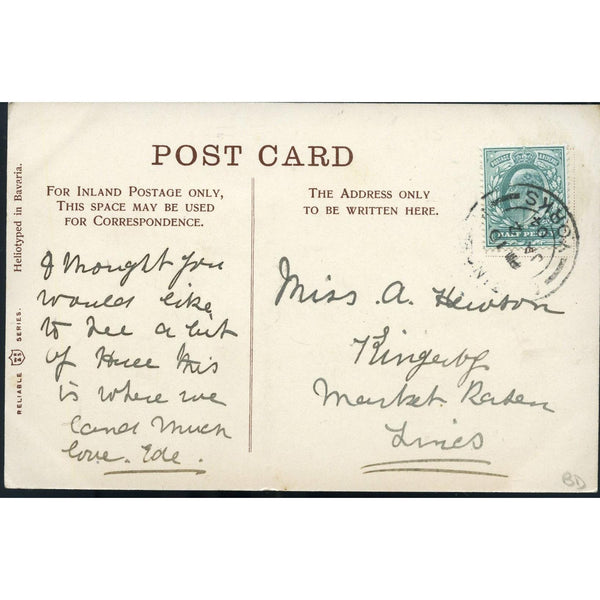 POST CARD
FOR INLAND POSTAGE ONLY,
THIS SPACE MAY BE USED
FOR CORRESPONDENCE.
THE ADDRESS ONLY
TO BE WRITTEN HERE.
I thought you
would like
to see a bit
of Hull this
is where we
land Much
love. Ede.
Miss A. Hewson
Kingerby
Market Rasen
Lincs
Heliotyped in Bavaria.
RELIABLE SERIES.
POSTAGE REVENUE
HALF PENNY
YORKS
JA
BD